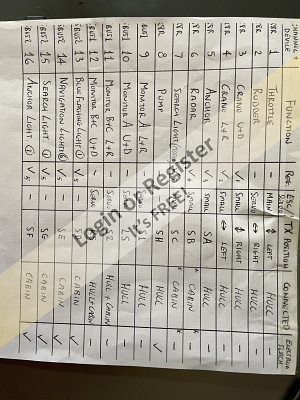 CHANNEL + DEVICE FUNCTION REG ESC/SERVO TX POSITION CONNECTED ELECTRON SWITCH
RX 1 THROTTLE — MAIN ↕ LEFT HULL —
RX 2 RUDDER — SERVO ↔ RIGHT HULL —
RX 3 CRANE U+D V1 SMALL ↕ RIGHT HULL —
RX 4 CRANE L+R V1 SMALL ↔ LEFT HULL —
RX 5 ANCHOR V1 SMALL SA HULL —
RX 6 RADAR SMALL SB CABIN —
RX 7 SEARCH LIGHT SC CABIN —
RX 8 PUMP SH HULL ✓
SBUS 9 MONITOR A L+R HULL —
SBUS 10 MONITOR A U+D LS HULL —
SBUS 11 MONITOR B+C L+R HULL + CABIN —
SBUS 12 MONITOR B+C U+D — SERVO HULL+CABIN —
SBUS 13 BLUE FLASHING LIGHT ① V5 — CABIN ✓
SBUS 14 NAVIGATION LIGHT V5 — SE CABIN ✓
SBUS 15 SEARCH LIGHT ① V5 — SG CABIN ✓
SBUS 16 ANCHOR LIGHT ① V5 — SF CABIN ✓
Login or Register
It's FREE!